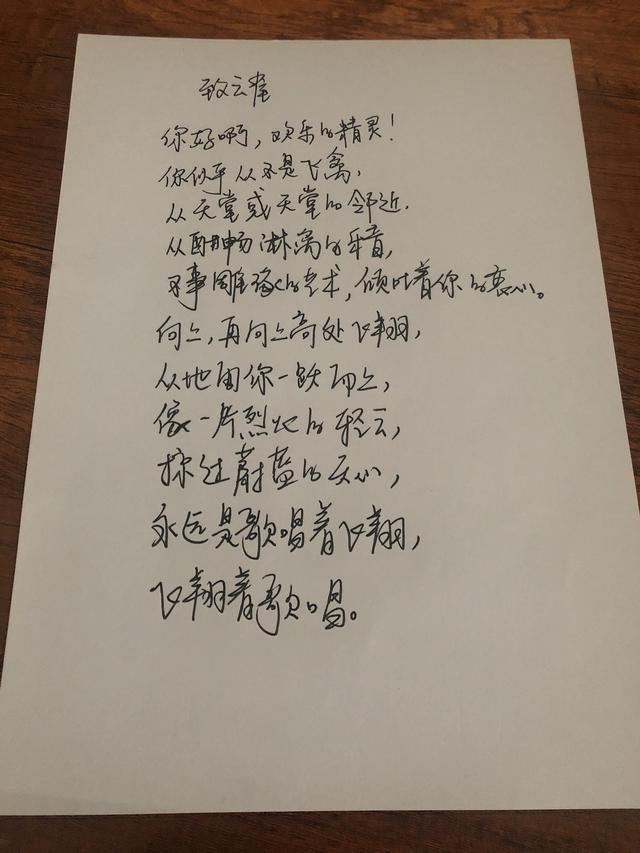 致云雀
你好啊，欢乐的精灵！
你似乎从不是飞禽，
从天堂或天堂的邻近，
从酣畅淋漓的乐音，
不事雕琢的艺术，倾吐着你的衷心。
向上，再向上高处飞翔，
从地面你一跃而上，
像一片烈火的轻云，
掠过蔚蓝的天心，
永远是歌唱着飞翔，
飞翔着歌唱。